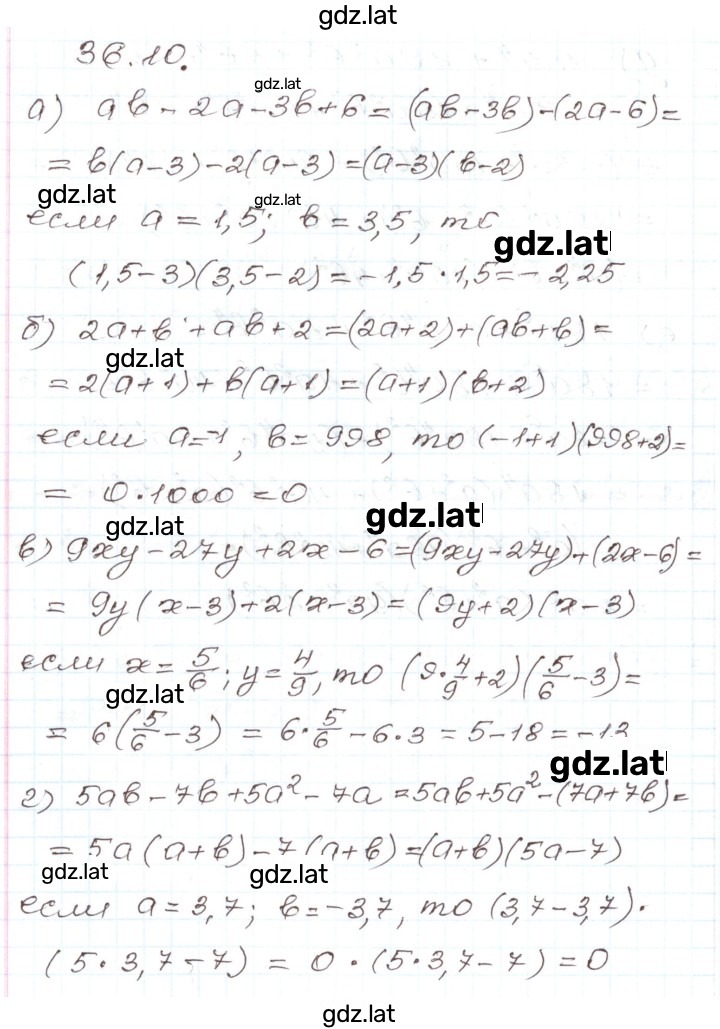 gdz.lat
36.10.
gdz.lat
а) ab - 2a - 3b + 6 = (ab - 3b) - (2a - 6) =
= b(a - 3) - 2(a - 3) = (a - 3)(b - 2)
gdz.lat gdz.lat
если a = 1,5; b = 3,5, то
gdz.lat
(1,5 - 3)(3,5 - 2) = -1,5 · 1,5 = -2,25
б) 2a + b + ab + 2 = (2a + 2) + (ab + b) =
gdz.lat
= 2(a + 1) + b(a + 1) = (a + 1)(b + 2)
если a = -1, b = 998, то (-1 + 1)(998 + 2) =
= 0 · 1000 = 0
gdz.lat
gdz.lat
в) 9xy - 27y + 2x - 6 = (9xy - 27y) + (2x - 6) =
= 9y(x - 3) + 2(x - 3) = (9y + 2)(x - 3)
если x = 5/6; y = 4/9, то (9 · 4/9 + 2)(5/6 - 3) =
gdz.lat
= 6(5/6 - 3) = 6 · 5/6 - 6 · 3 = 5 - 18 = -13
gdz.lat
г) 5ab - 7b + 5a² - 7a = 5ab + 5a² - (7a + 7b) =
= 5a(a + b) - 7(a + b) = (a + b)(5a - 7)
gdz.lat gdz.lat
если a = 3,7; b = -3,7, то (3,7 - 3,7) ·
(5 · 3,7 - 7) = 0 · (5 · 3,7 - 7) = 0
gdz.lat